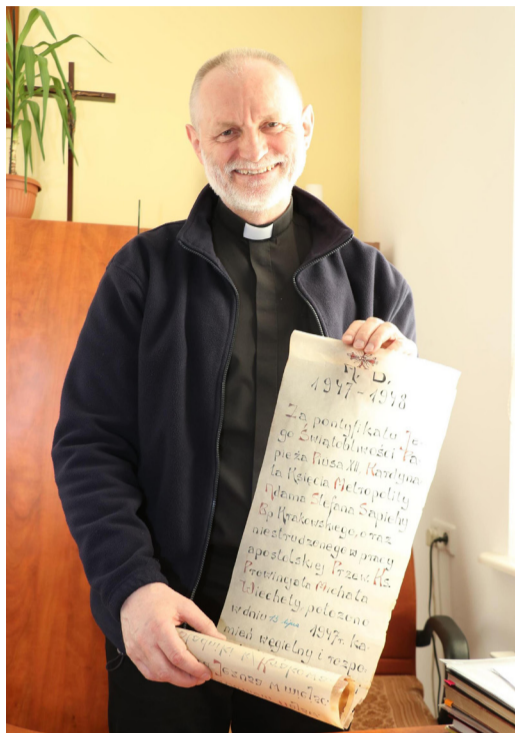 A. D.
1947-1948
Za pontyfikatu Je-
go Świątobliwości Pa
pieża Piusa XII, Kardyna-
ła Księcia Metropolity
Adama Stefana Sapiehy
Bp Krakowskiego, oraz
niestrudzonego w pracy
apostolskiej Przew. Ks.
Prowincjała Michała
Wiechety, położono
w dniu lipca 1947 r. ka-
mień węgielny i rozpo-
Jezusa